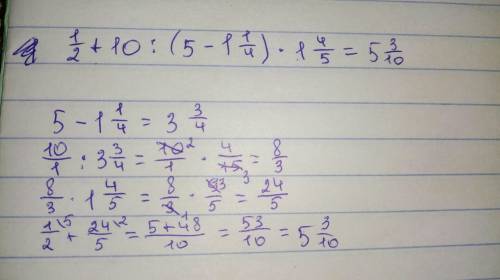 1/2 + 10 : (5 - 1 1/4) · 1 4/5 = 5 3/10
5 - 1 1/4 = 3 3/4
10/1 : 3 3/4 = 10 2/1 · 4/15 3 = 8/3
8/3 · 1 4/5 = 8/3 1 · 9 3/5 = 24/5
1/2 \5 + 24/5 \2 = 5+48/10 = 53/10 = 5 3/10